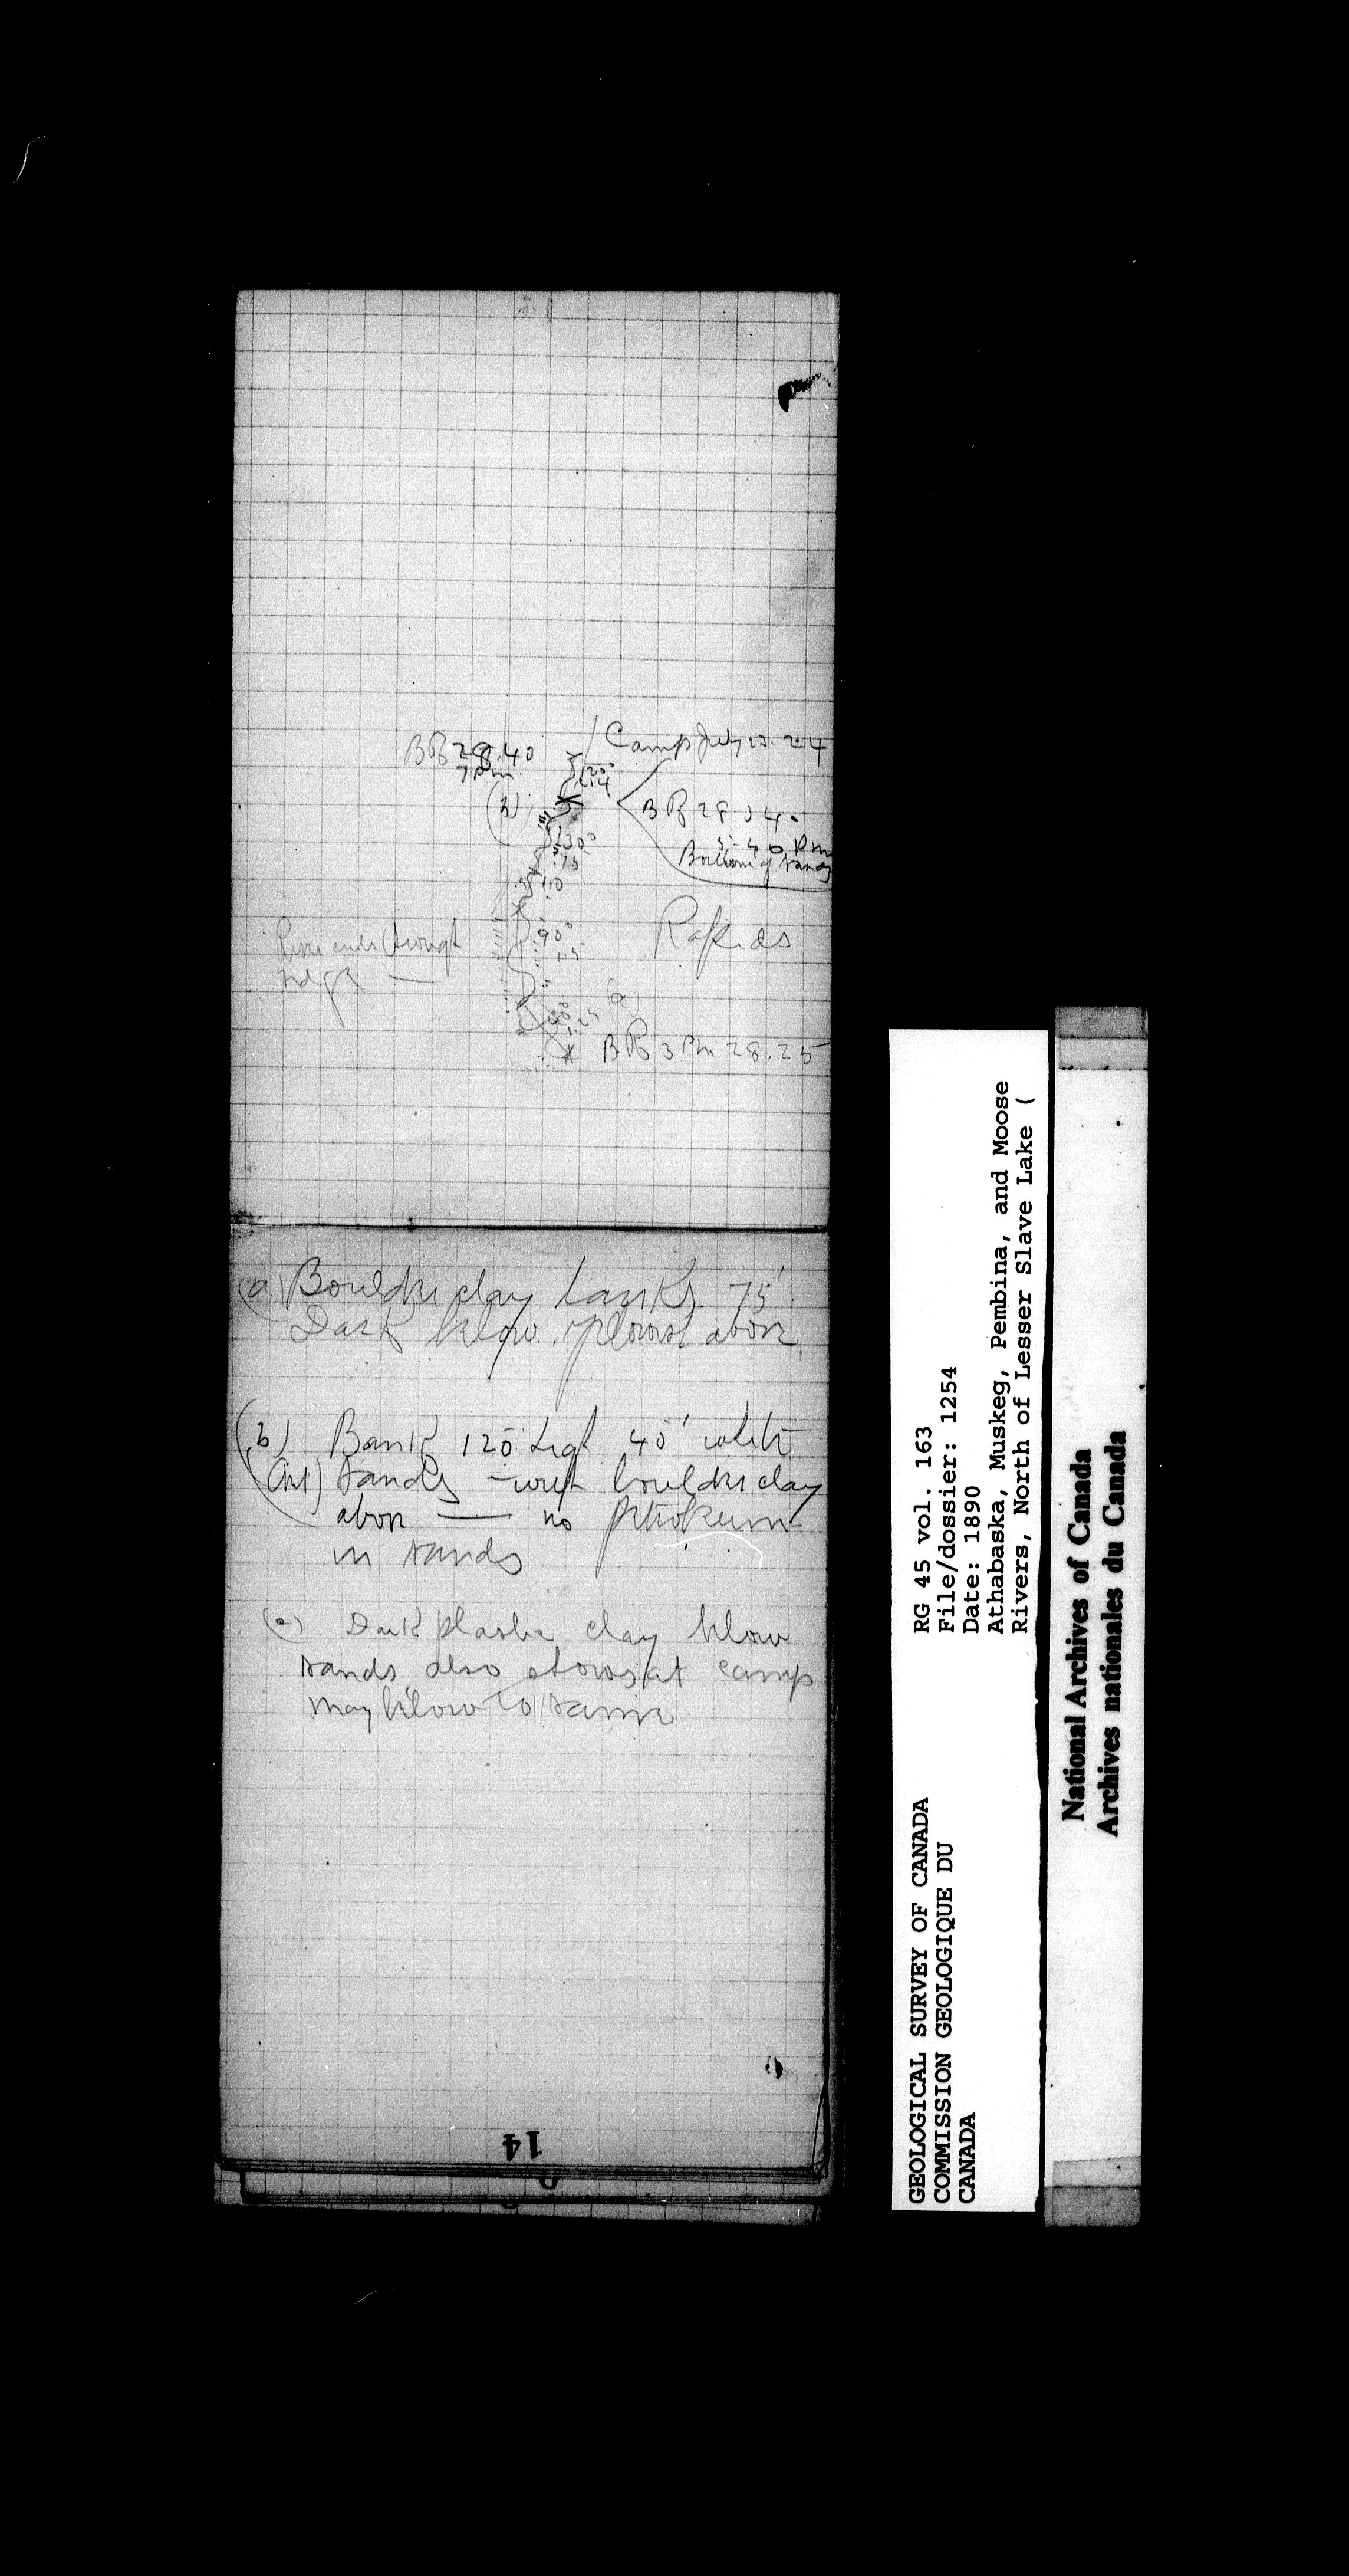 Camp July 24
BR 28.40
7 Pm
120°
(b)
BR 28.34
5-40 Pm
Bottom of sands
130°
.75
110
90°
1.5
Rapids
River cuts through
ridge —
(a
BR 3 Pm 28.25
(a) Boulder clay banks 75'
Dark below yellowish above
(b) Bank 120 high 40' white
sands — with boulder clay
above — no petroleum
in sands
(c) Dark plastic clay below
sands also shows at camp
may belong to same
14
RG 45 vol. 163
File/dossier: 1254
Date: 1890
Athabaska, Muskeg, Pembina, and Moose
Rivers, North of Lesser Slave Lake (
GEOLOGICAL SURVEY OF CANADA
COMMISSION GEOLOGIQUE DU
CANADA
National Archives of Canada
Archives nationales du Canada